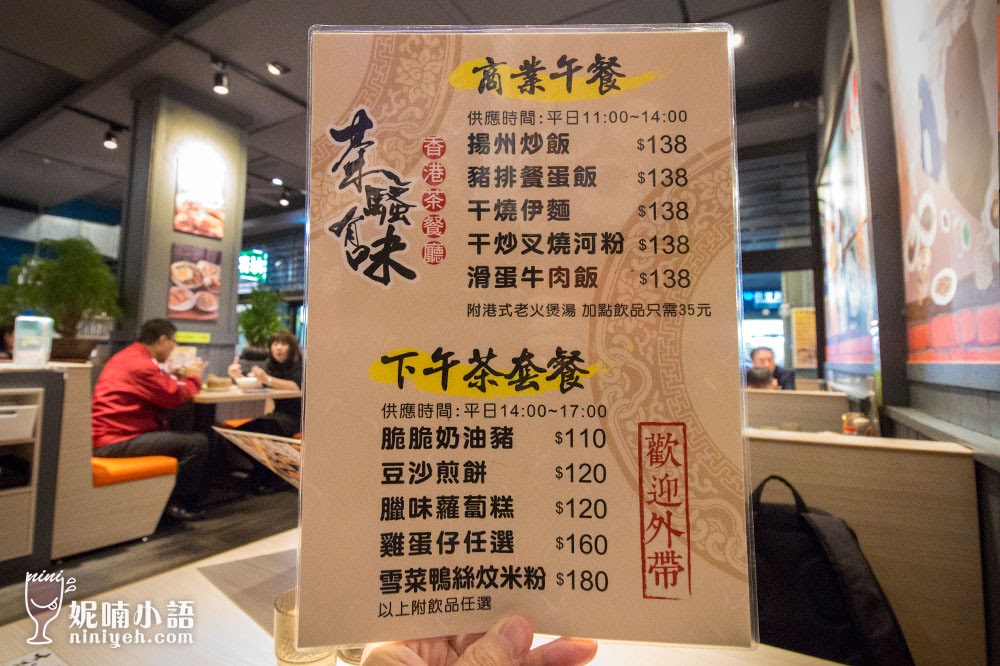 商業午餐
供應時間:平日11:00~14:00
揚州炒飯 $138
豬排餐蛋飯 $138
干燒伊麵 $138
干炒叉燒河粉 $138
滑蛋牛肉飯 $138
附港式老火煲湯 加點飲品只需35元
茶騷有味
香港茶餐廳
下午茶套餐
供應時間:平日14:00~17:00
脆脆奶油豬 $110
豆沙煎餅 $120
臘味蘿蔔糕 $120
雞蛋仔任選 $160
雪菜鴨絲炆米粉 $180
以上附飲品任選
歡迎外帶
nini
妮喃小語
niniyeh.com